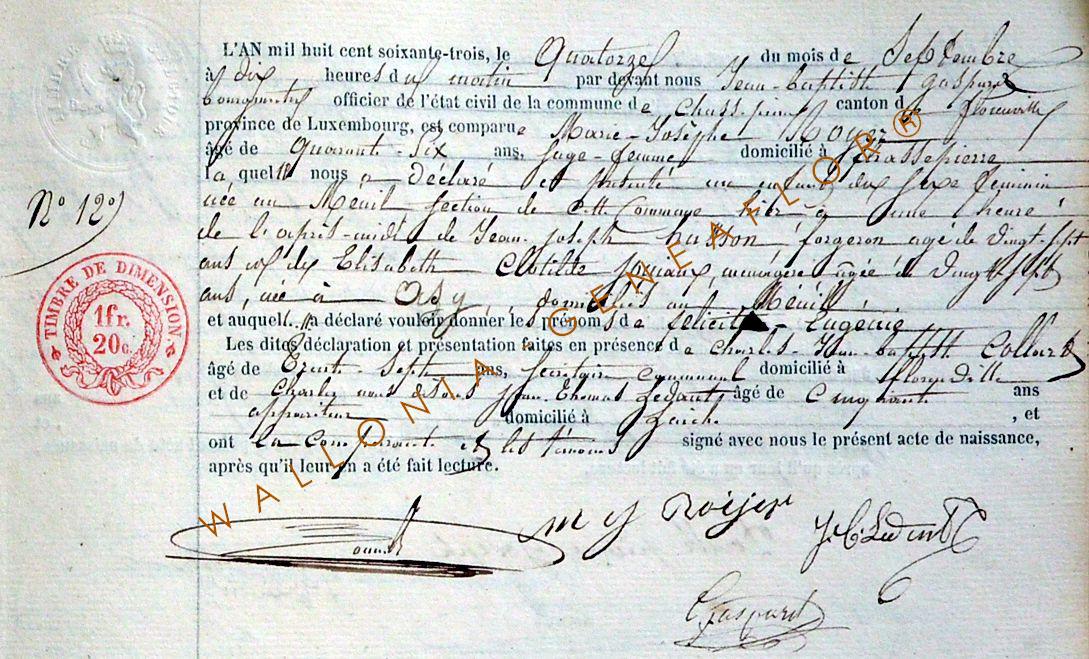 L'AN mil huit cent soixante-trois, le quatorze du mois de Septembre
à dix heures du matin par devant nous Jean-baptiste Gaspard
bourgmestre officier de l'état civil de la commune de Chassepierre canton de florenville
province de Luxembourg, est comparue Marie-Josèphe Royer
âgé de quarante-six ans, sage-femme domicilié à Chassepierre
laquelle nous a déclaré et présenté un enfant du sexe féminin
née au Ménil section de cette Commune hier à une heure
de l'après-midi de Jean-Joseph husson forgeron agé de vingt-sept
ans et de Elisabeth Clotilde ménagère agée de vingt-sept
ans, née à domiciliés au Ménil
et auquel a déclaré vouloir donner les prénoms de félicité-Eugénie
Les dites déclaration et présentation faites en présence de Charles-Jean-baptiste Collard
âgé de trente-sept ans, secrétaire communal domicilié à florenville
et de Jean Thomas âgé de cinquante ans
appariteur domicilié à , et
ont la comparante et les témoins signé avec nous le présent acte de naissance,
après qu'il leur en a été fait lecture.
N° 129
TIMBRE DE DIMENSION
1 fr.
20c.
WALLONIA - GENEAFLOR®
m J Roijer
Gaspard